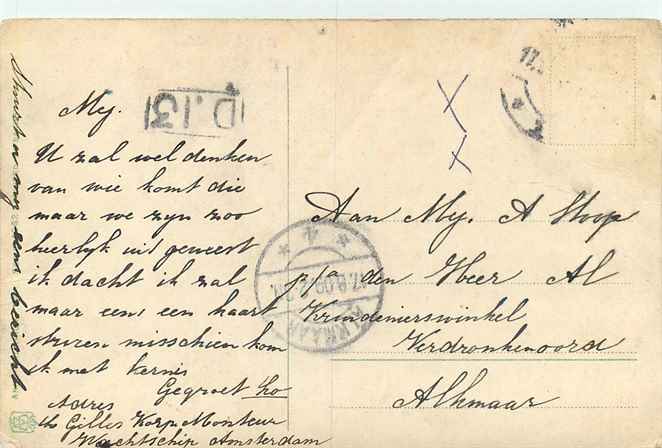 Mej.
U zal wel denken
van wie komt die
maar we zijn zoo
heerlijk uit geweest
ik dacht ik zal
maar eens een kaart
sturen misschien kom
ik met kermis
Gegroet
Adres
Gilles Korp. Monteur
Wachtschip Amsterdam
mij een bericht
D.13
17.
ALKMAAR
17.8.09
4
Aan Mej. A Stoop
p/a den Heer Al
Kruidenierswinkel
Verdronkenoord
Alkmaar